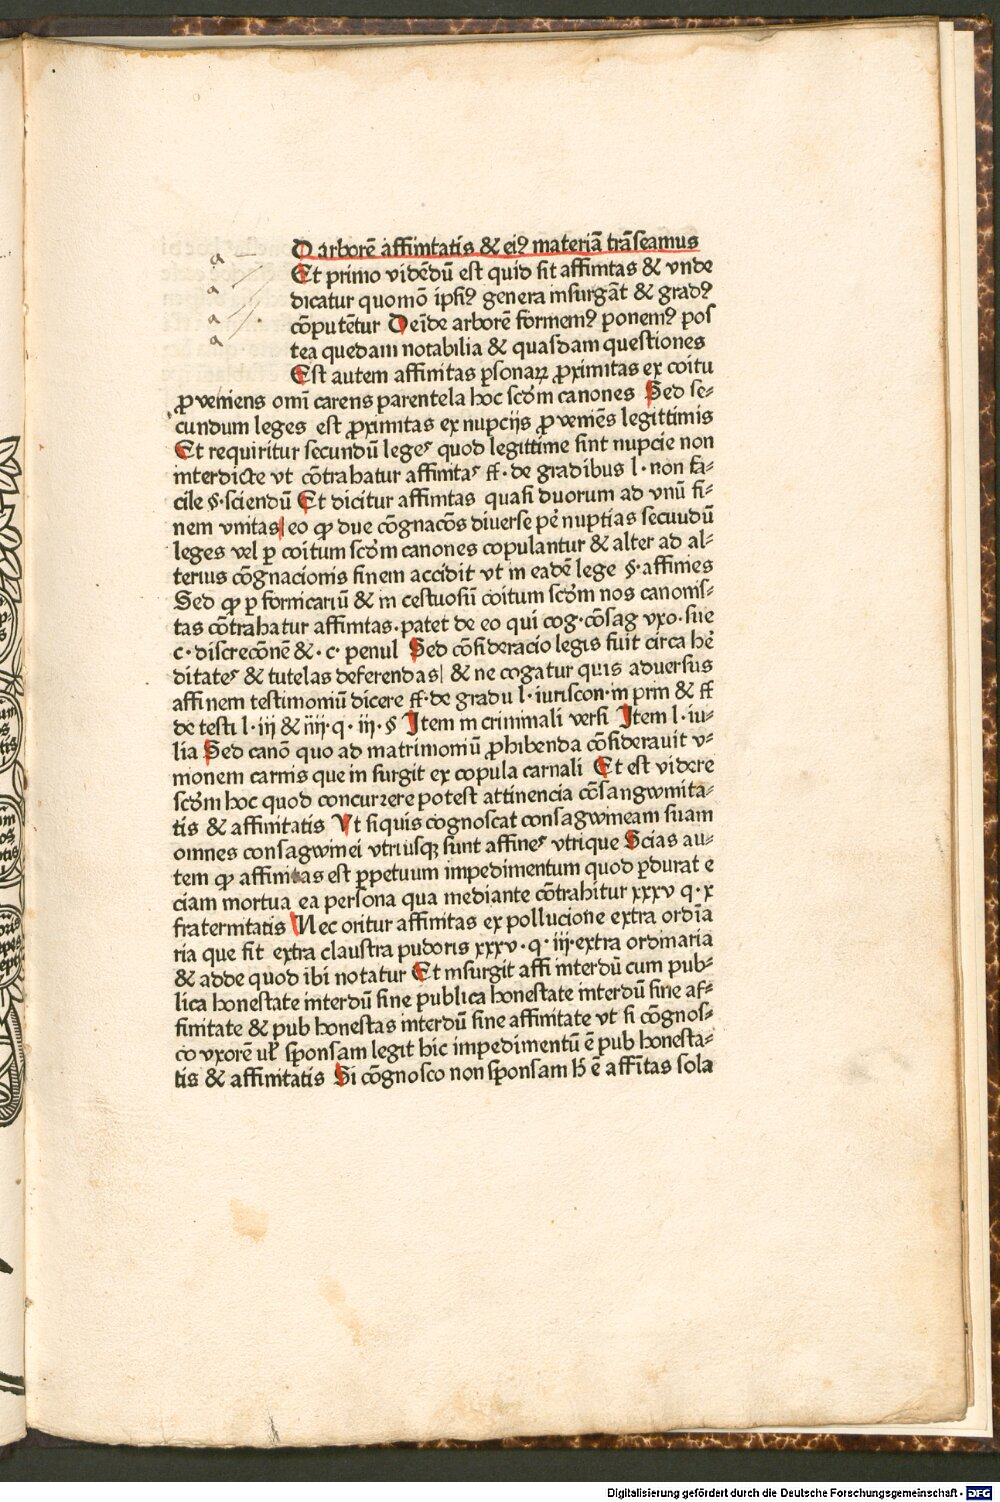 D arborē affinitatis & eiꝰ materiā trāseamus
Et primo vidēdū est quid sit affinitas & vnde
dicatur quomō ipsiꝰ genera insurgāt & gradꝰ
cōputētur Deīde arborē formemꝰ ponemꝰ pos
tea quedam notabilia & quasdam questiones
Est autem affinitas ꝑsonaꝝ ꝓximitas ex coitu
ꝓveniens omī carens parentela hoc scd̄m canones Sed se-
cundum leges est ꝓximitas ex nupcijs ꝓveniēs legittimis
Et requiritur secundū leges quod legittime sint nupcie non
interdicte vt cōtrahatur affinitas ff. de gradibus l. non fa-
cile §. sciendū Et dicitur affinitas quasi duorum ad vnū fi-
nem vnitas eo ꝙ due cōgnacōs diverse pē nuptias secuudū
leges vel ꝑ coitum scd̄m canones copulantur & alter ad al-
terius cōgnacionis finem accidit vt in eadē lege §. affines
Sed ꝙ ꝑ fornicariū & in cestuosū coitum scd̄m nos canonis-
tas cōtrahatur affinitas. patet de eo qui cog. cōsag vxo. sue
c. discrecōne &. c. penul Sed cōsideracio legis fuit circa hē
ditates & tutelas deferendas & ne cogatur quis adversus
affinem testimoniū dicere ff. de gradu l. iuriscon. in prin & ff
de testi l. iij & iiij. q. iij. § Item in criminali versi Item l. iu-
lia Sed canō quo ad matrimoniū ꝓhibenda cōsideravit v-
nionem carnis que in surgit ex copula carnali Et est videre
scd̄m hoc quod concurrere potest attinencia cōsangwinita-
tis & affinitatis Vt si quis cognoscat consagwineam suam
omnes consagwinei vtriusqꝫ sunt affines vtrique Scias au-
tem ꝙ affinitas est ꝑpetuum impedimentum quod ꝑdurat e
ciam mortua ea persona qua mediante cōtrahitur xxxv q. x
fraternitatis Nec oritur affinitas ex pollucione extra ordīa
ria que fit extra claustra pudoris xxxv. q. iij. extra ordinaria
& adde quod ibi notatur Et insurgit affi interdū cum pub-
lica honestate interdū sine publica honestate interdū sine af-
finitate & pub honestas interdū sine affinitate vt si cōgnos-
co vxorē uł sponsam legit hic impedimentū ē pub honesta-
tis & affinitatis Si cōgnosco non sponsam h̄ ē affītas sola
a
a
a
a
Digitalisierung gefördert durch die Deutsche Forschungsgemeinschaft - DFG